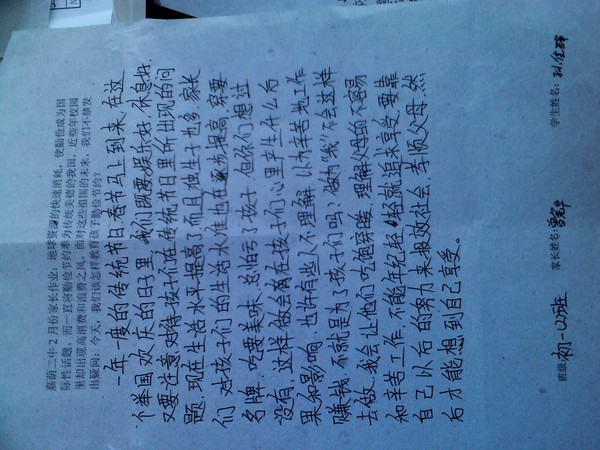 嘉荫二中2月份家长作业:地球资源的快速消耗,使勤俭成为国
际性话题,而一直将勤俭节约奉为传统美德的我国,近些年校园
里却出现高消费和浪费之风。面对这些祖国的未来,我们不禁发
出疑问:今天,我们该怎样教育孩子勤俭节约?
一年一度的传统节日春节马上到来,在这
个举国欢庆的日子里,我们既要娱乐好,休息好,
又要注意对待孩子们在传统节日里所出现的问
题,现在生活水平提高了而且独生子也多,家长
们对孩子们的生活水准也在步提高,穿要
名牌,吃要美味,怕亏了孩子,但你们想过
没有,这样做会有在孩子们心里产生什么后
果和影响,也许有些人不理解,认为辛苦地工作
赚钱,不就是为了孩子们吗?做为"我"不会这样
去做,我会让他们吃饱穿暖,理解父母的不容易
和辛苦工作,不能年纪轻轻就追求享受,要靠
自己以后的努力来报效社会,孝顺父母,然
后才能想到自己享受。
班级 初一(2)班 家长姓名: 学生姓名: